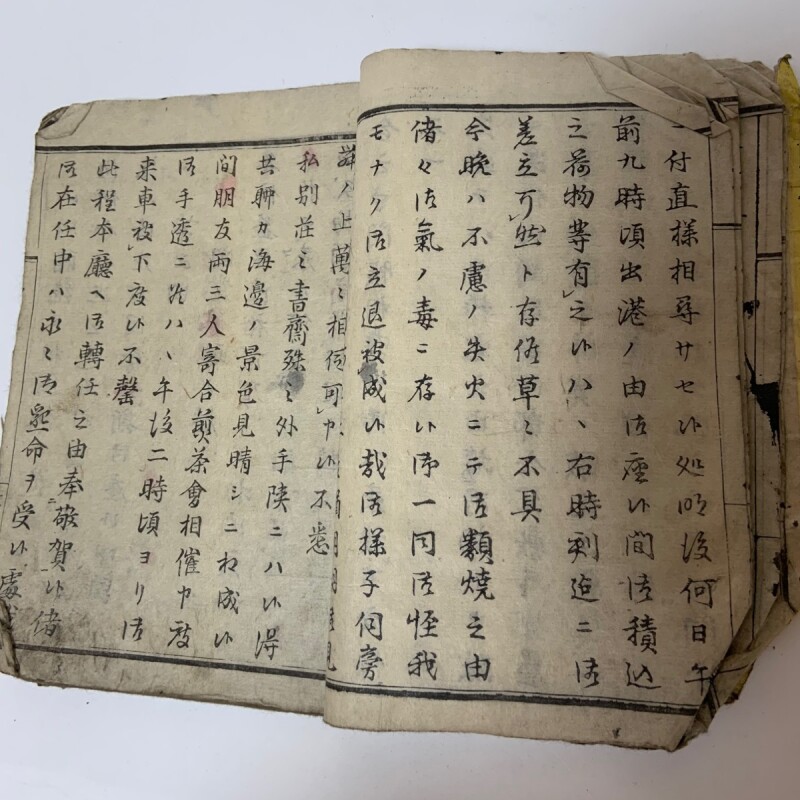 付直様相尋サセ候処明後何日午
前九時頃出港ノ由御座候間御積込
之荷物等有之候ハヽ右時刻迄ニ御
差立可然ト存候草々不具
今晩ハ不慮ノ失火ニテ御類焼之由
偖々御氣ノ毒ニ存候御一同御怪我
モナク御立退被成候哉御様子伺旁
上萬々相伺可申候不悉
私別荘之書齋殊之外手陜ニハ候得
共聊カ海邊ノ景色見晴シニ相成候
間朋友両三人寄合煎茶會相催申度
御手透ニ候ハヽ午後二時頃ヨリ御
来車被下度候不罄
此程本廳ヘ御轉任之由奉敬賀候偖
御在任中ハ永々御懇命ヲ受候處